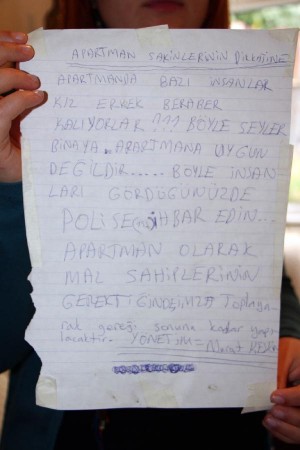 APARTMAN SAKİNLERİNİN DİKKATİNE
APARTMANDA BAZI İNSANLAR
KIZ ERKEK BERABER
KALIYORLAR ??? BÖYLE ŞEYLER
BİNAYA .. APARTMANA UYGUN
DEĞİLDİR..... BÖYLE İNSAN
LARI GÖRDÜĞÜNÜZDE
POLİSE İHBAR EDİN...
APARTMAN OLARAK
MAL SAHİPLERİNİN
GEREKTİĞİNDE İMZA Toplana
rak gereği sonuna kadar yapı
lacaktır. YÖNETİM = Murat